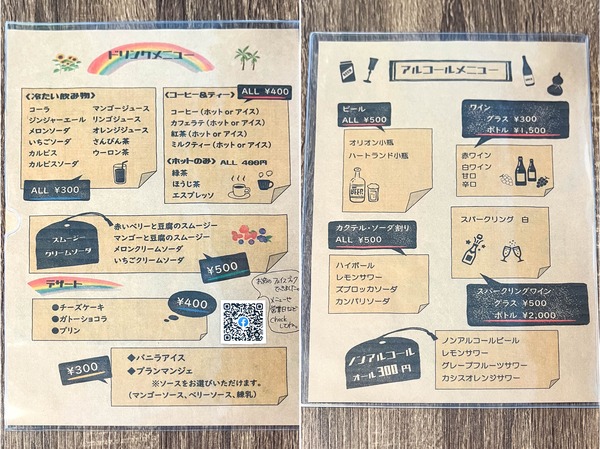 ドリンクメニュー
〈冷たい飲み物〉
コーラ
ジンジャーエール
メロンソーダ
いちごソーダ
カルピス
カルピスソーダ
マンゴージュース
リンゴジュース
オレンジジュース
さんぴん茶
ウーロン茶
ALL ¥300
〈コーヒー&ティー〉
ALL ¥400
コーヒー(ホット or アイス)
カフェラテ(ホット or アイス)
紅茶(ホット or アイス)
ミルクティー(ホット or アイス)
〈ホットのみ〉 ALL 400円
緑茶
ほうじ茶
エスプレッソ
スムージー
クリームソーダ
赤いベリーと豆腐のスムージー
マンゴーと豆腐のスムージー
メロンクリームソーダ
いちごクリームソーダ
¥500
デザート
●チーズケーキ
●ガトーショコラ
●プリン
¥400
メニューや
営業日など
check
してね。
¥300
◆バニラアイス
◆ブランマンジェ
※ソースをお選びいただけます。
(マンゴーソース、ベリーソース、練乳)
アルコールメニュー
ビール
ALL ¥500
オリオン小瓶
ハートランド小瓶
BEER
ワイン
グラス ¥300
ボトル ¥1,500
赤ワイン
白ワイン
甘口
辛口
カクテル・ソーダ割り
ALL ¥500
ハイボール
レモンサワー
ズブロッカソーダ
カンパリソーダ
スパークリング 白
スパークリングワイン
グラス ¥500
ボトル ¥2,000
ノンアルコール
オール300円
ノンアルコールビール
レモンサワー
グレープフルーツサワー
カシスオレンジサワー